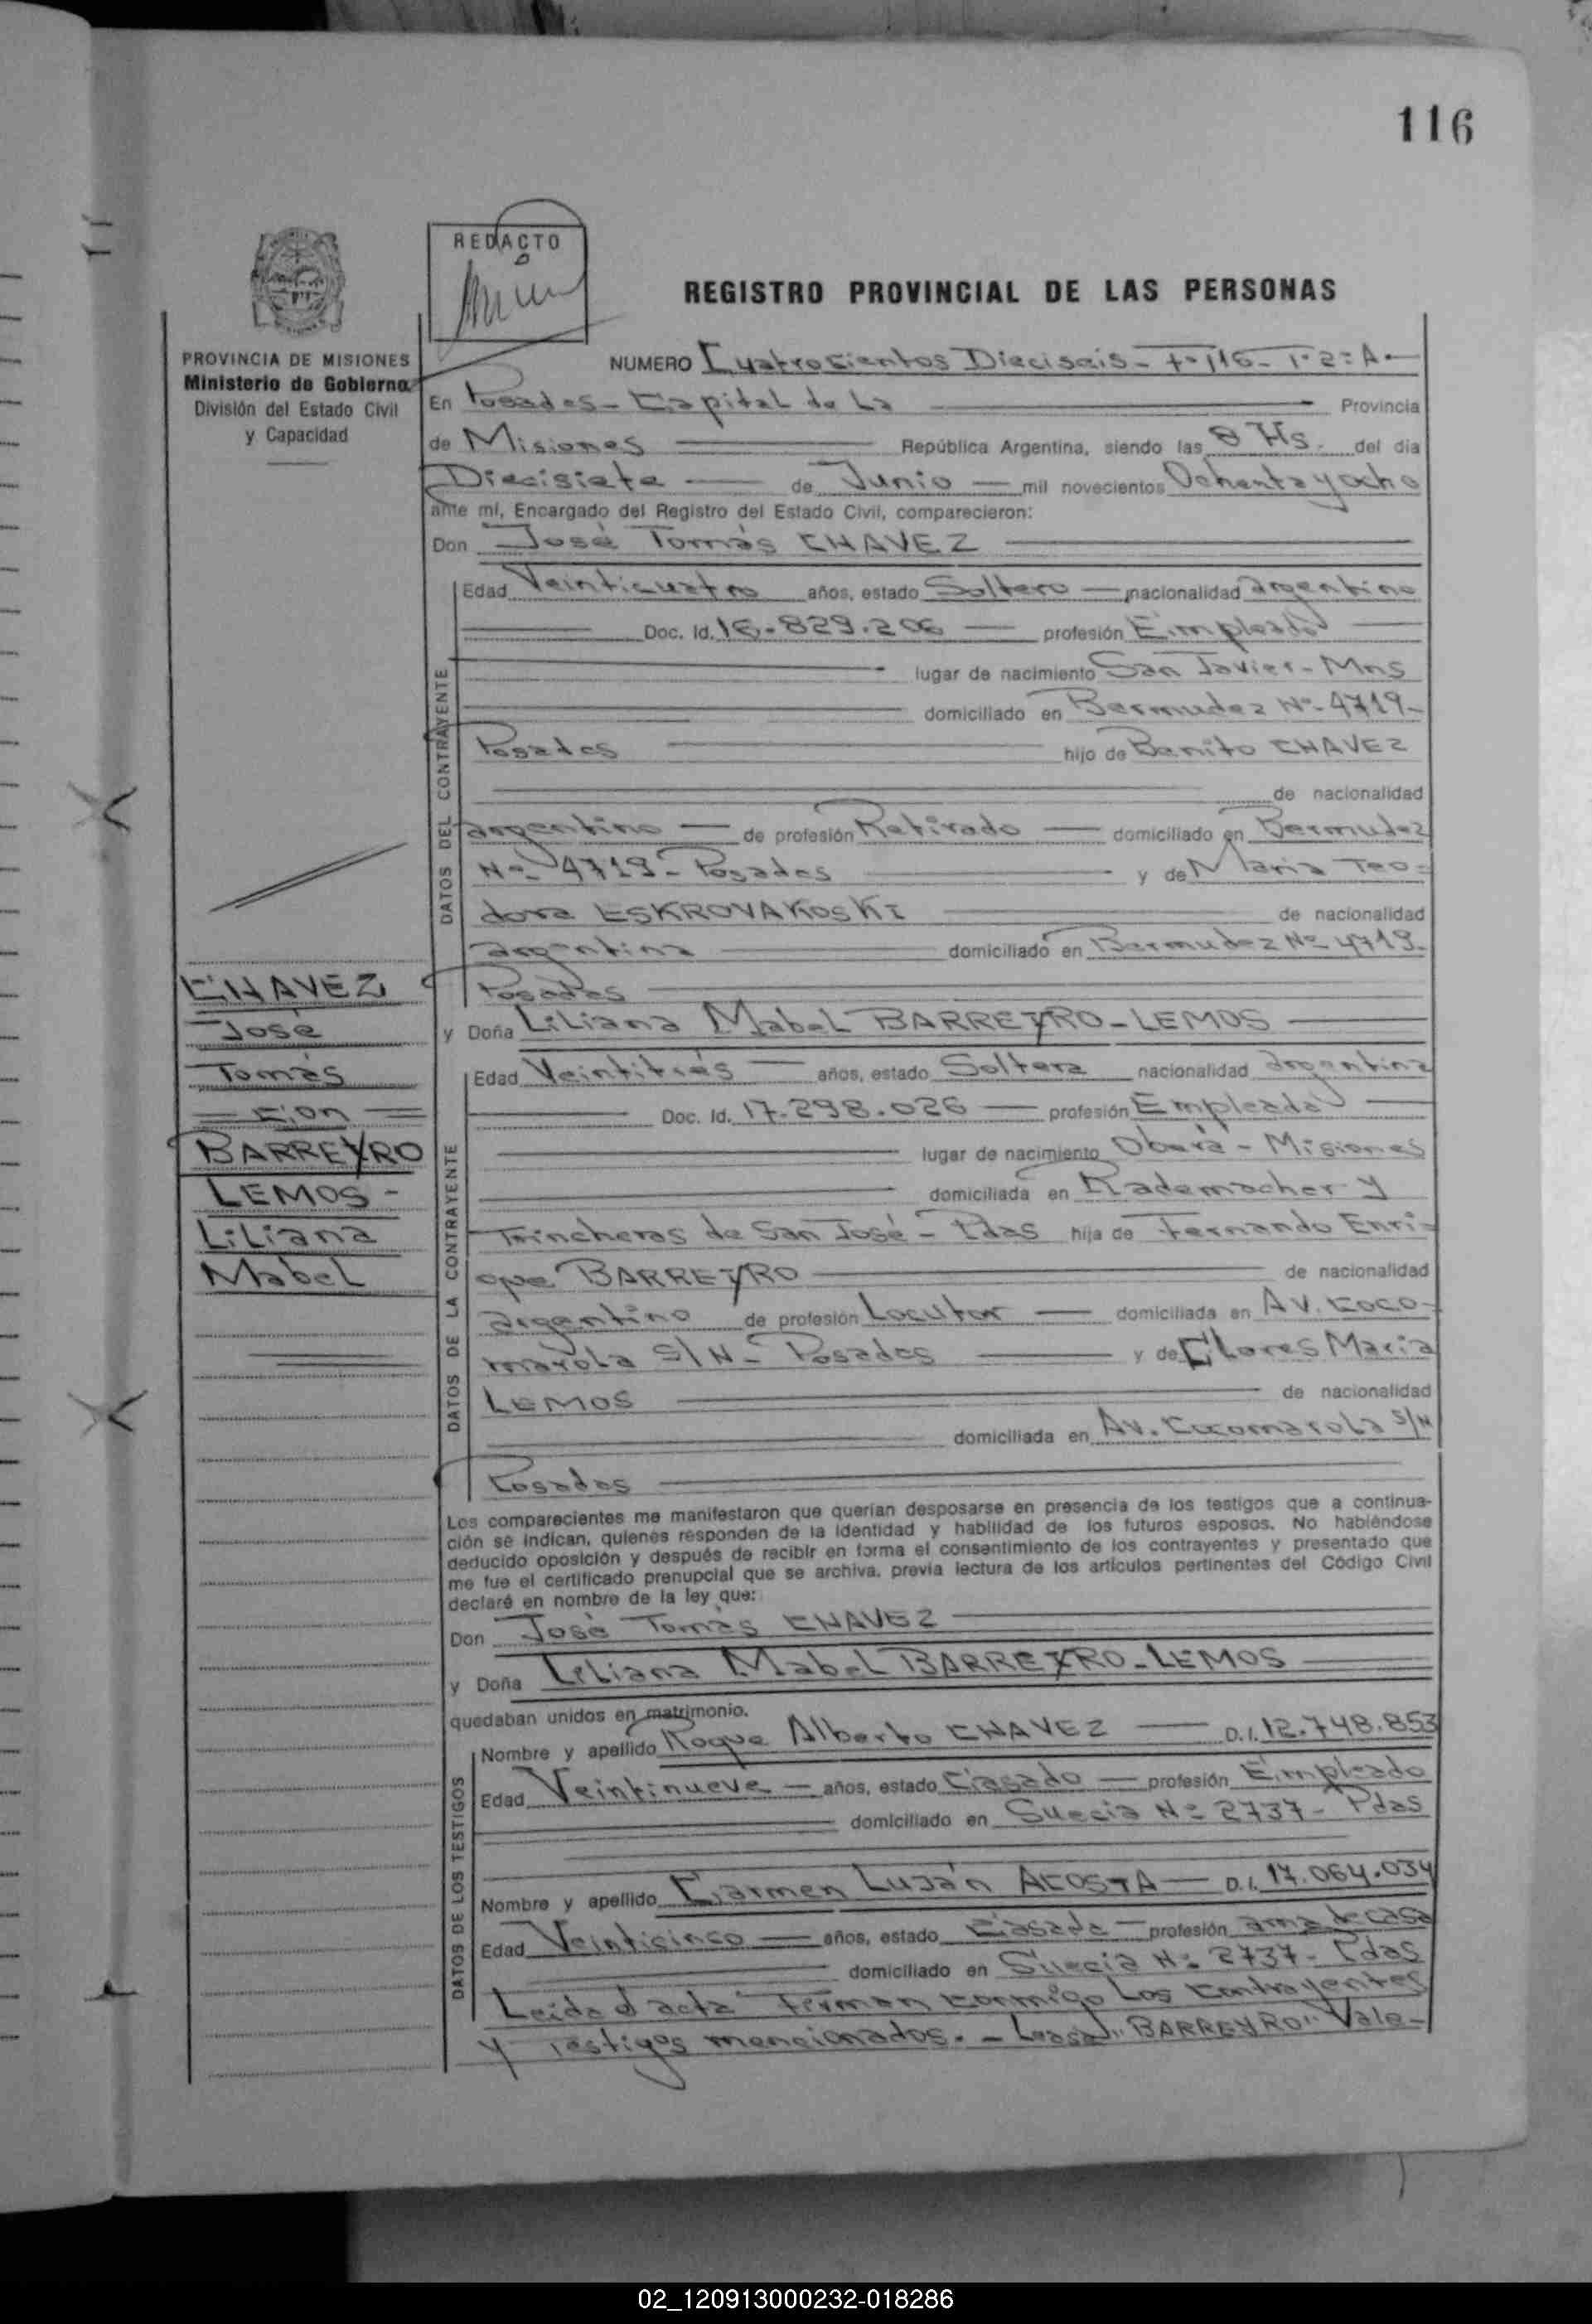 116
REDACTO
REGISTRO PROVINCIAL DE LAS PERSONAS
PROVINCIA DE MISIONES
Ministerio de Gobierno
División del Estado Civil
y Capacidad
NUMERO Cuatrocientos Dieciseis - Fº 116 - Tº 2º A.
En Posadas - Capital de La Provincia
de Misiones República Argentina, siendo las 8 Hs. del dia
Diecisiete de Junio mil novecientos Ochenta y ocho
ante mí, Encargado del Registro del Estado Civil, comparecieron:
Don José Tomás CHAVEZ
DATOS DEL CONTRAYENTE
Edad Veinticuatro años, estado Soltero nacionalidad argentino
Doc. Id. 16.829.206 profesión Empleado
lugar de nacimiento San Javier - Mns
domiciliado en Bermudez Nº 4719 -
Posadas hijo de Benito CHAVEZ
de nacionalidad
argentino de profesión Retirado domiciliado en Bermudez
Nº 4719 - Posadas y de Maria Teo=
dora ESKROVAKOSKI de nacionalidad
argentina domiciliado en Bermudez Nº 4719.
Posadas
CHAVEZ
José
Tomás
= con =
BARREYRO
LEMOS -
Liliana
Mabel
y Doña Liliana Mabel BARREYRO - LEMOS
DATOS DE LA CONTRAYENTE
Edad Veintitrés años, estado Soltera nacionalidad argentina
Doc. Id. 17.298.026 profesión Empleada
lugar de nacimiento Oberá - Misiones
domiciliada en Rademacher y
Trincheras de San José - Pdas hija de Fernando Enri=
que BARREYRO de nacionalidad
argentino de profesión Locutor domiciliada en AV. Coco-
marola S/N - Posadas y de Clores Maria
LEMOS de nacionalidad
domiciliada en Av. Cocomarola S/N
Posadas
Los comparecientes me manifestaron que querían desposarse en presencia de los testigos que a continua-
ción se indican, quienes responden de la identidad y habilidad de los futuros esposos. No habiéndose
deducido oposición y después de recibir en forma el consentimiento de los contrayentes y presentado que
me fue el certificado prenupcial que se archiva, previa lectura de los artículos pertinentes del Código Civil
declaré en nombre de la ley que:
Don José Tomás CHAVEZ
y Doña Liliana Mabel BARREYRO - LEMOS
quedaban unidos en matrimonio.
DATOS DE LOS TESTIGOS
Nombre y apellido Roque Alberto CHAVEZ D.I. 12.748.853
Edad Veintinueve años, estado Casado profesión Empleado
domiciliado en Suecia Nº 2737 - Pdas
Nombre y apellido Carmen Luján ACOSTA D.I. 17.064.034
Edad Veinticinco años, estado Casada profesión ama de casa
domiciliado en Suecia Nº 2737 - Pdas
Leida el acta Firman conmigo Los contrayentes
y Testigos mencionados. - Lease "BARREYRO" Vale -
02_120913000232-018286